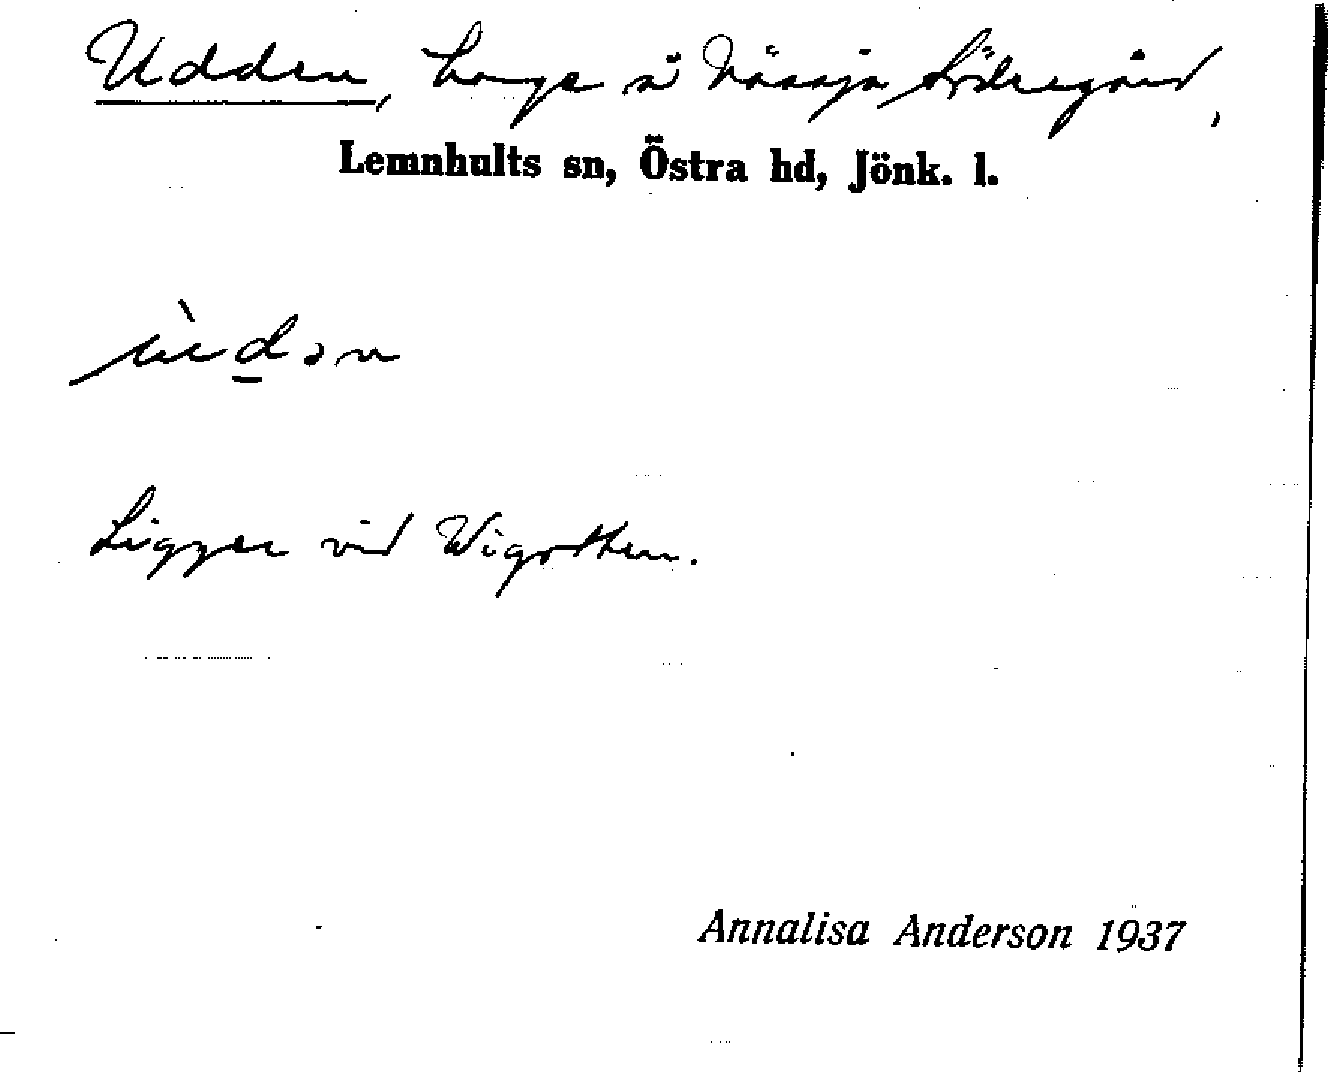 Udden, Lunge å Nässja Södregård,
Lemnhults sn, Östra hd, Jönk. l.
ùdən
Ligger vid Wigotten.
Annalisa Anderson 1937